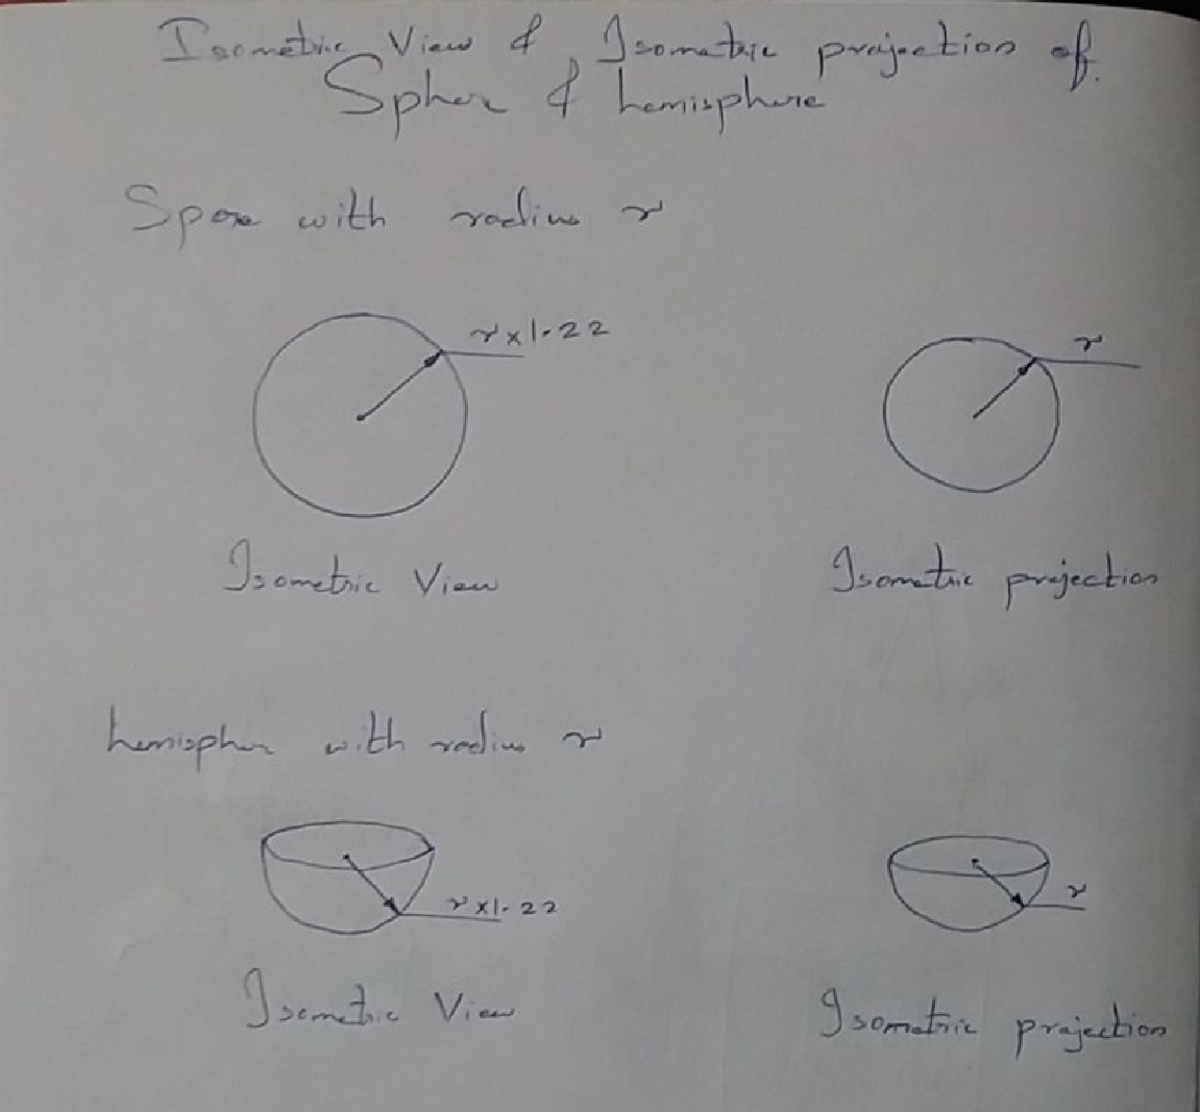 Isometric View & Isometric projection of.
Spher & hemisphere
with radius r
r x 1.22
r
Isometric View
Isometric projection
hemispher with radius r
r x 1.22
r
Isometric View
Isometric projection